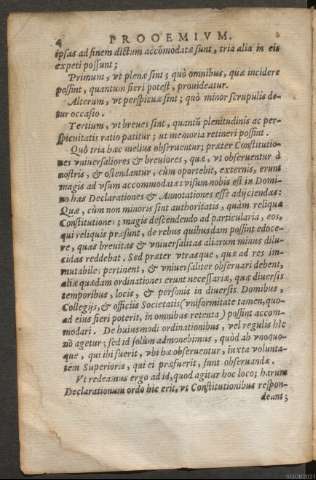 4 PROOEMIVM.
ipsas ad finem dictum accõmodatæ sunt, tria alia in eis
expeti possunt;
Primum, vt plenæ sint; quò omnibus, quæ incidere
possint, quantum fieri potest, prouideatur.
Alterum, vt perspicuæ sint; quò minor scrupulis de-
tur occasio.
Tertium, vt breues sint, quantũ plenitudinis ac per-
spicuitatis ratio patitur; ut memoria retineri possint.
Quò tria hæc meliùs obseruentur; præter Constitutio-
nes vniuersaliores & breuiores, quæ, vt obseruentur à
nostris, & ostendantur, cùm oportebit, externis, erunt
magis ad vsum accommodatæ: visum nobis est in Domi-
no has Declarationes & Annotationes esse adijciendas:
Quæ, cùm non minoris sint authoritatis, quàm reliquæ
Constitutiones; magis descendendo ad particularia, eos,
qui reliquis præsunt, de rebus quibusdam possint edoce-
re, quas breuitas & vniuersalitas aliarum minùs dilu-
cidas reddebat. Sed præter vtrasque, quæ ad res im-
mutabiles pertinent, & vniuersaliter obseruari debent,
aliæ quædam ordinationes erunt necessariæ, quæ diuersis
temporibus, locis, & personis in diuersis Domibus,
Collegijs, & officijs Societatis (vniformitate tamen, quo-
ad eius fieri poterit, in omnibus retenta) possint accom-
modari. De huiusmodi ordinationibus, vel regulis hîc
nõ agetur; sed id solùm admonebimus, quòd ab vnoquo-
que, qui ibi fuerit, vbi hæ obseruentur, iuxta volunta-
tem Superioris, qui ei præfuerit, sunt obseruandæ.
Vt redeamus ergo ad id, quod agitur hoc loco; harum
Declarationum ordo hic erit, vt Constitutionibus respon-
deant;